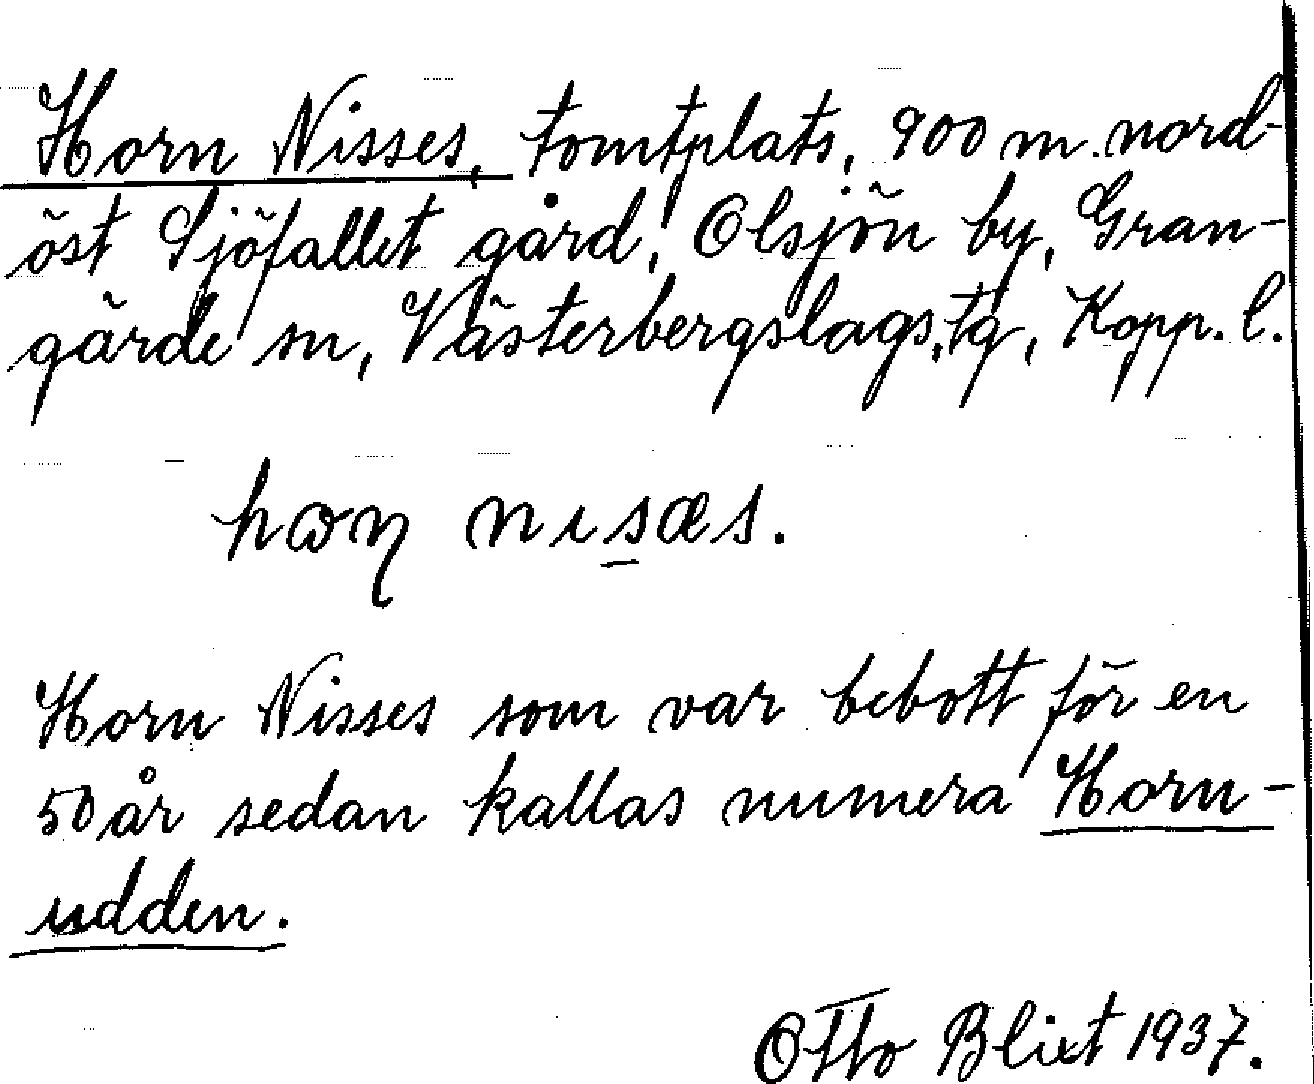 Horn Nisses, tomtplats, 900 m. nord-
öst Sjöfallet gård, Olsjön by, Gran-
gärde sn, Västerbergslags tg, Kopp. l.
hɷɳ nısæs.
Horn Nisses som var bebott för en
50 år sedan kallas numera Horn-
udden.
Otto Blixt 1937.